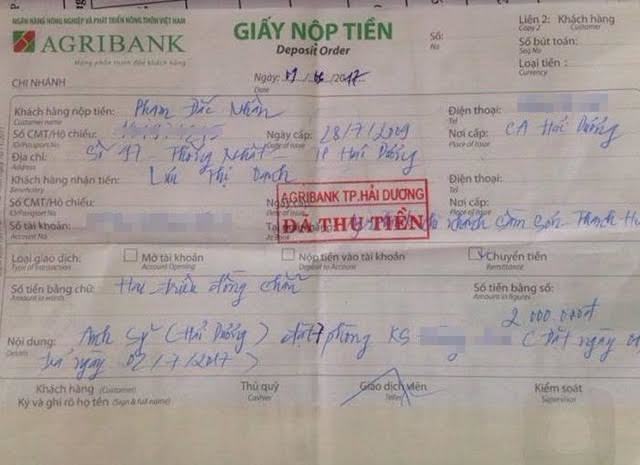 NGÂN HÀNG NÔNG NGHIỆP VÀ PHÁT TRIỂN NÔNG THÔN VIỆT NAM
AGRIBANK
Mang phồn thịnh đến khách hàng
GIẤY NỘP TIỀN
Deposit Order
Số:
No
Liên 2: Khách hàng
Copy 2 Customer
Số bút toán:
Seq No
Loại tiền:
Currency
CHI NHÁNH
Ngày: / /2017
Date
Khách hàng nộp tiền: Phạm Đắc Nhân
Customer name
Điện thoại:
Tel
Số CMT/Hộ chiếu:
ID/Passport No
Ngày cấp: 28/7/2009
Date of issue
Nơi cấp: CA Hải Dương
Place of issue
Địa chỉ: Số 17 - Thống Nhất - TP Hải Dương
Address
Khách hàng nhận tiền: Thị
Beneficiary
Điện thoại:
Tel
Số CMT/Hộ chiếu:
ID/Passport No
Ngày cấp
Date of issue
Nơi cấp:
Place of issue
AGRIBANK TP.HẢI DƯƠNG
ĐÃ THU TIỀN
Số tài khoản:
Account No
Sầm Sơn - Thanh
Loại giao dịch:
Type of transaction
Mở tài khoản
Account Opening
Nộp tiền vào tài khoản
Deposit to Account
Chuyển tiền
Remittance
Số tiền bằng chữ: Hai triệu đồng chẵn
Amount in words
Số tiền bằng số:
Amount in figures
2.000.000đ
Nội dung: Anh Sỹ (Hải Dương) đặt 7 phòng KS Đặt ngày
Details
ngày 02/7/2017)
Khách hàng (Customer)
Ký và ghi rõ họ tên (Sign & full name)
Thủ quỹ
Cashier
Giao dịch viên
Teller
Kiểm soát
Supervisor